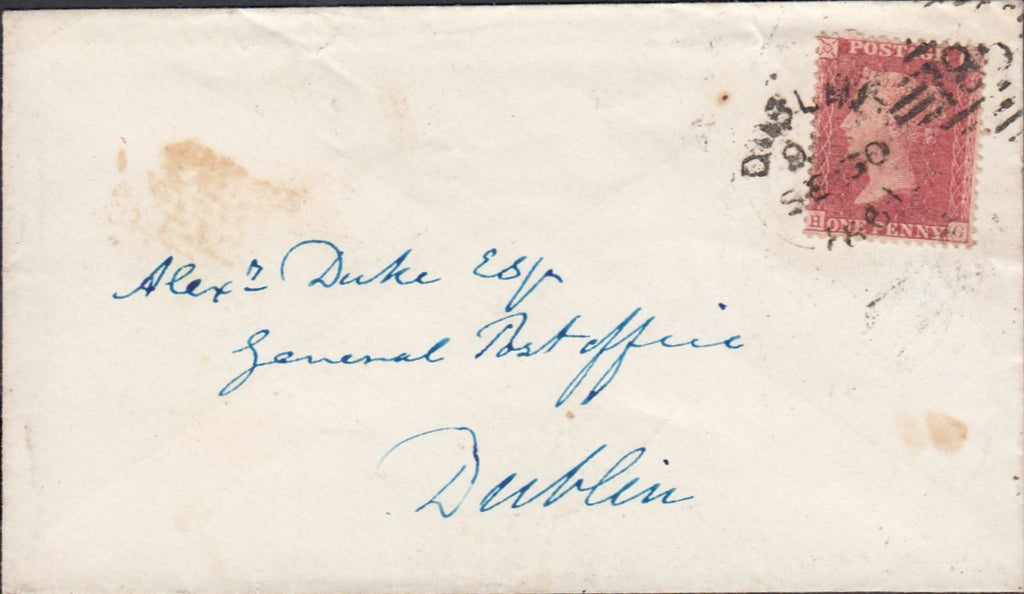 POSTAGE
H ONE PENNY G
Alexr Duke Esqr
General Post office
Dublin